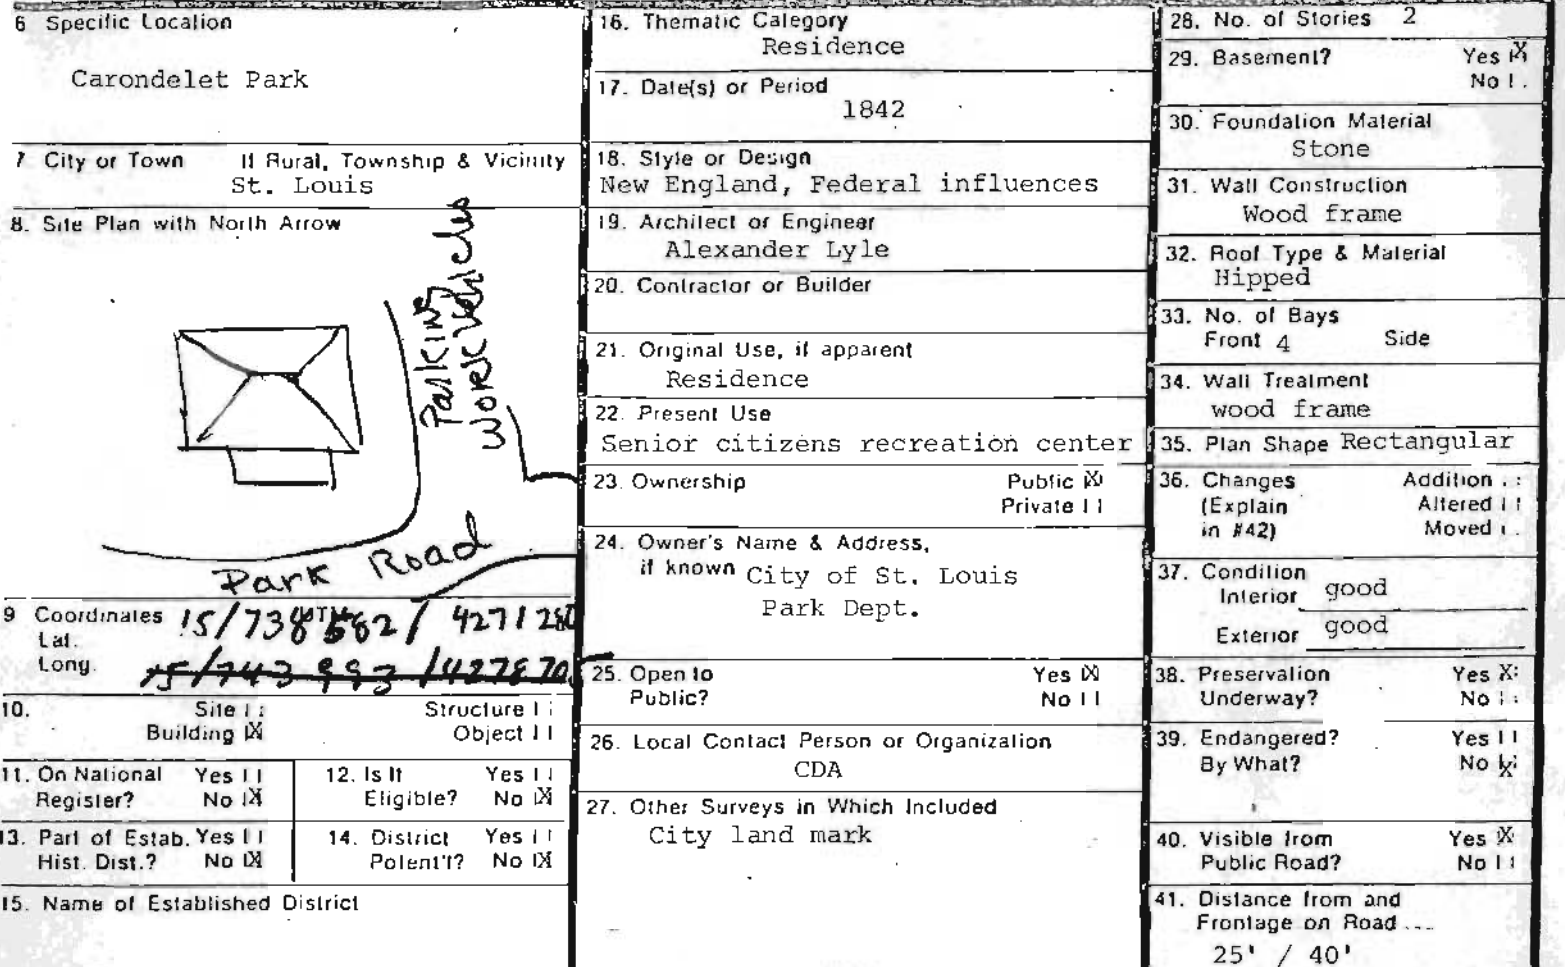 6 Specific Location
Carondelet Park
7 City or Town If Rural, Township & Vicinity
St. Louis
8. Site Plan with North Arrow
Parking
Work Vehicles
Park Road
9 Coordinates
Lat.
Long.
15/738 582 / 4271 280
15/743 993 /4278 70
10. Site Structure
Building X Object
11. On National Register? Yes No X
12. Is It Eligible? Yes No X
13. Part of Estab. Hist. Dist.? Yes No X
14. District Potent'l? Yes No X
15. Name of Established District
16. Thematic Category
Residence
17. Date(s) or Period
1842
18. Style or Design
New England, Federal influences
19. Architect or Engineer
Alexander Lyle
20. Contractor or Builder
21. Original Use, if apparent
Residence
22. Present Use
Senior citizens recreation center
23. Ownership Public X
Private
24. Owner's Name & Address,
if known City of St. Louis
Park Dept.
25. Open to Yes X
Public? No
26. Local Contact Person or Organization
CDA
27. Other Surveys in Which Included
City land mark
28. No. of Stories 2
29. Basement? Yes X
No
30. Foundation Material
Stone
31. Wall Construction
Wood frame
32. Roof Type & Material
Hipped
33. No. of Bays
Front 4 Side
34. Wall Treatment
wood frame
35. Plan Shape Rectangular
36. Changes Addition
(Explain Altered
in #42) Moved
37. Condition
Interior good
Exterior good
38. Preservation Yes X
Underway? No
39. Endangered? Yes
By What? No X
40. Visible from Yes X
Public Road? No
41. Distance from and
Frontage on Road
25' / 40'